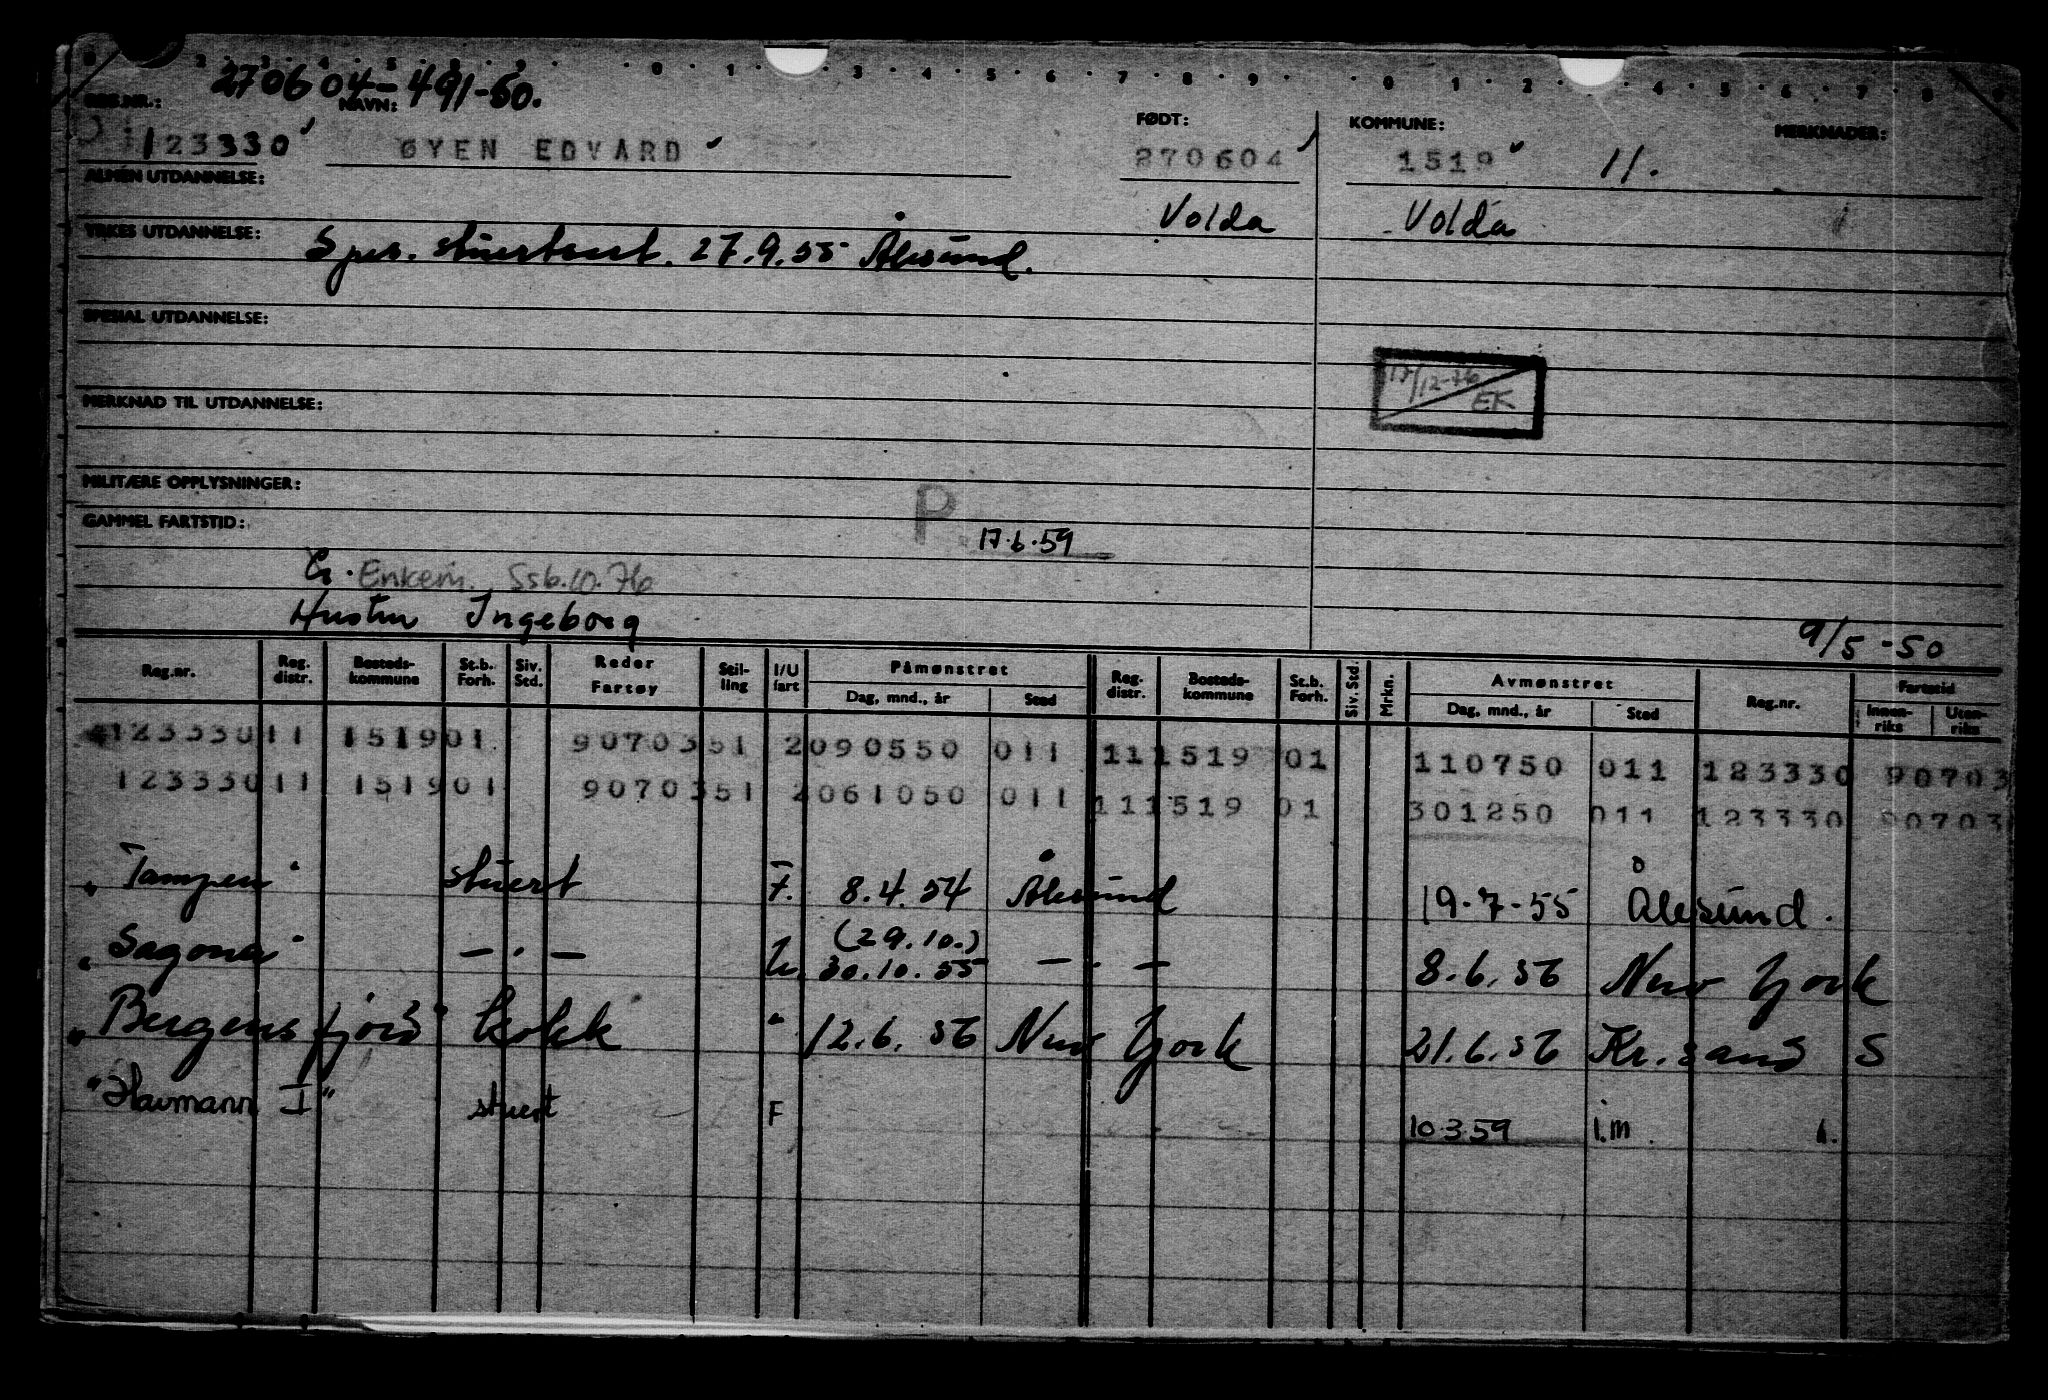 270604-491-50.
REG.NR.: NAVN: FØDT: KOMMUNE: MERKNADER:
123330 ØYEN EDVARD 270604 1519 11.
ALMEN UTDANNELSE: Volda Volda
YRKES UTDANNELSE: Spes. stuertsert. 27.9.55 Ålesund.
SPESIAL UTDANNELSE:
17/12-76 EK
MERKNAD TIL UTDANNELSE:
MILITÆRE OPPLYSNINGER:
P 17.6.59
GAMMEL FARTSTID:
G. Enkem. Ssb.10.76
Hustru Ingeborg
9/5-50
Reg.nr. Reg. distr. Bosteds-kommune St.b. Forh. Siv. Std. Reder Fartøy Stil-ling I/U fart Påmønstret Dag, mnd., år Sted Reg. distr. Bosteds-kommune St.b. Forh. Siv. Std. Mrkn. Avmønstret Dag, mnd., år Sted Reg.nr. Fartstid Innen-riks Uten-riks
123330 11 1519 01 9070351 2 090550 011 11 1519 01 110750 011 123330 90703
123330 11 1519 01 9070351 2 061050 011 11 1519 01 301250 011 123330 90703
"Tampen" stuert F. 8.4.54 Ålesund 19-7-55 Ålesund.
"Sagona" — . — U. (29.10.) 30.10.55 — . — 8.6.56 New York
"Bergensfjord" kokk " 12.6.56 New York 21.6.56 Kr.sand S
"Havmann I" stuert F 10.3.59 i.m.